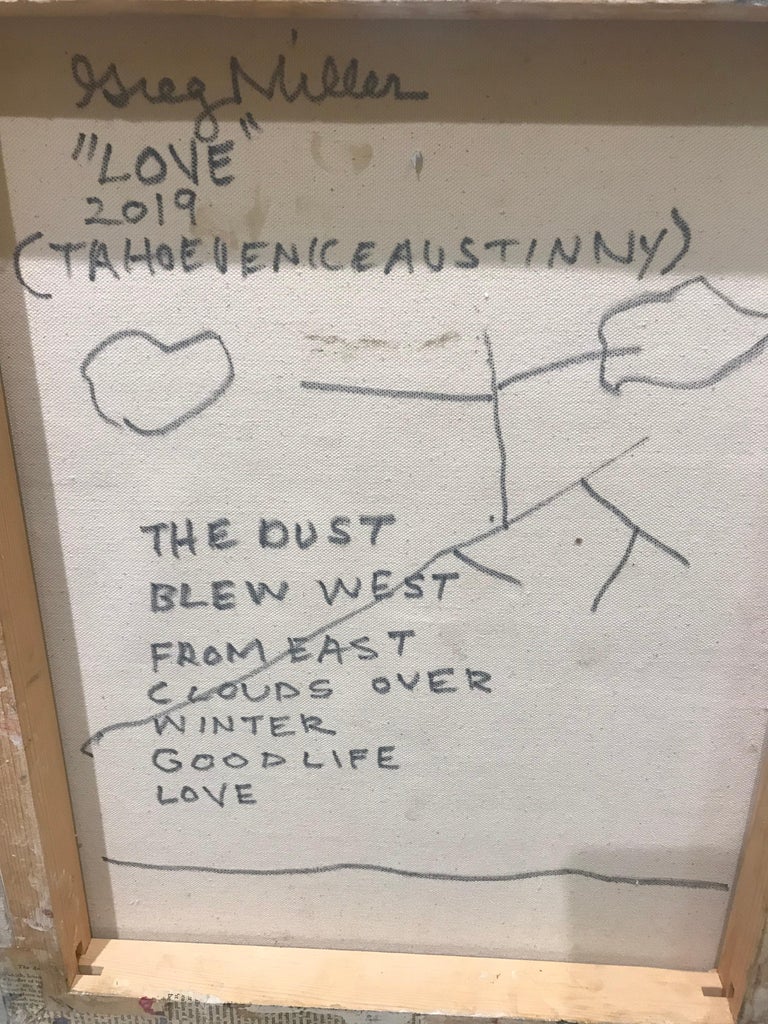 Greg Miller
"LOVE"
2019
(TAHOEVENICEAUSTINNY)
THE DUST
BLEW WEST
FROM EAST
CLOUDS OVER
WINTER
GOODLIFE
LOVE